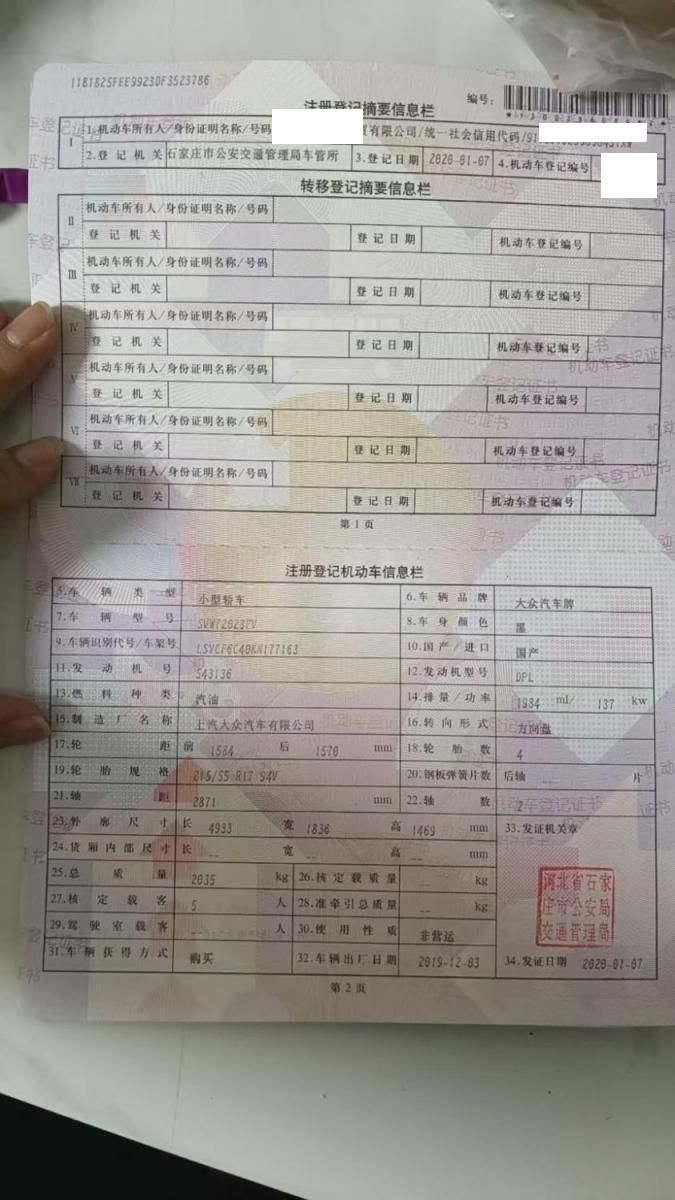 11B1825FEE9923DF3523786
编号：
注册登记摘要信息栏
I 1.机动车所有人/身份证明名称/号码 贸有限公司/统一社会信用代码/91
2.登记机关 石家庄市公安交通管理局车管所 3.登记日期 2020-01-07 4.机动车登记编号
转移登记摘要信息栏
II 机动车所有人/身份证明名称/号码
登记机关 登记日期 机动车登记编号
III 机动车所有人/身份证明名称/号码
登记机关 登记日期 机动车登记编号
IV 机动车所有人/身份证明名称/号码
登记机关 登记日期 机动车登记编号
V 机动车所有人/身份证明名称/号码
登记机关 登记日期 机动车登记编号
VI 机动车所有人/身份证明名称/号码
登记机关 登记日期 机动车登记编号
VII 机动车所有人/身份证明名称/号码
登记机关 登记日期 机动车登记编号
第1页
注册登记机动车信息栏
5.车辆类型 小型轿车 6.车辆品牌 大众汽车牌
7.车辆型号 8.车身颜色 黑
9.车辆识别代号/车架号 LSVCF6C40KN177163 10.国产/进口 国产
11.发动机号 543136 12.发动机型号 DPL
13.燃料种类 汽油 14.排量/功率 1984 ml/ 137 kw
15.制造厂名称 上汽大众汽车有限公司 16.转向形式 方向盘
17.轮距 前 1584 后 1570 mm 18.轮胎数 4
19.轮胎规格 215/55 R17 94V 20.钢板弹簧片数 后轴 -- 片
21.轴距 2871 mm 22.轴数 2
23.外廓尺寸 长 4933 宽 1836 高 1469 mm 33.发证机关章
24.货厢内部尺寸 长 -- 宽 -- 高 -- mm
25.总质量 2035 kg 26.核定载质量 -- kg
27.核定载客 5 人 28.准牵引总质量 -- kg
29.驾驶室载客 -- 人 30.使用性质 非营运
河北省石家
庄市公安局
交通管理局
31.车辆获得方式 购买 32.车辆出厂日期 2019-12-03 34.发证日期 2020-01-07
第2页